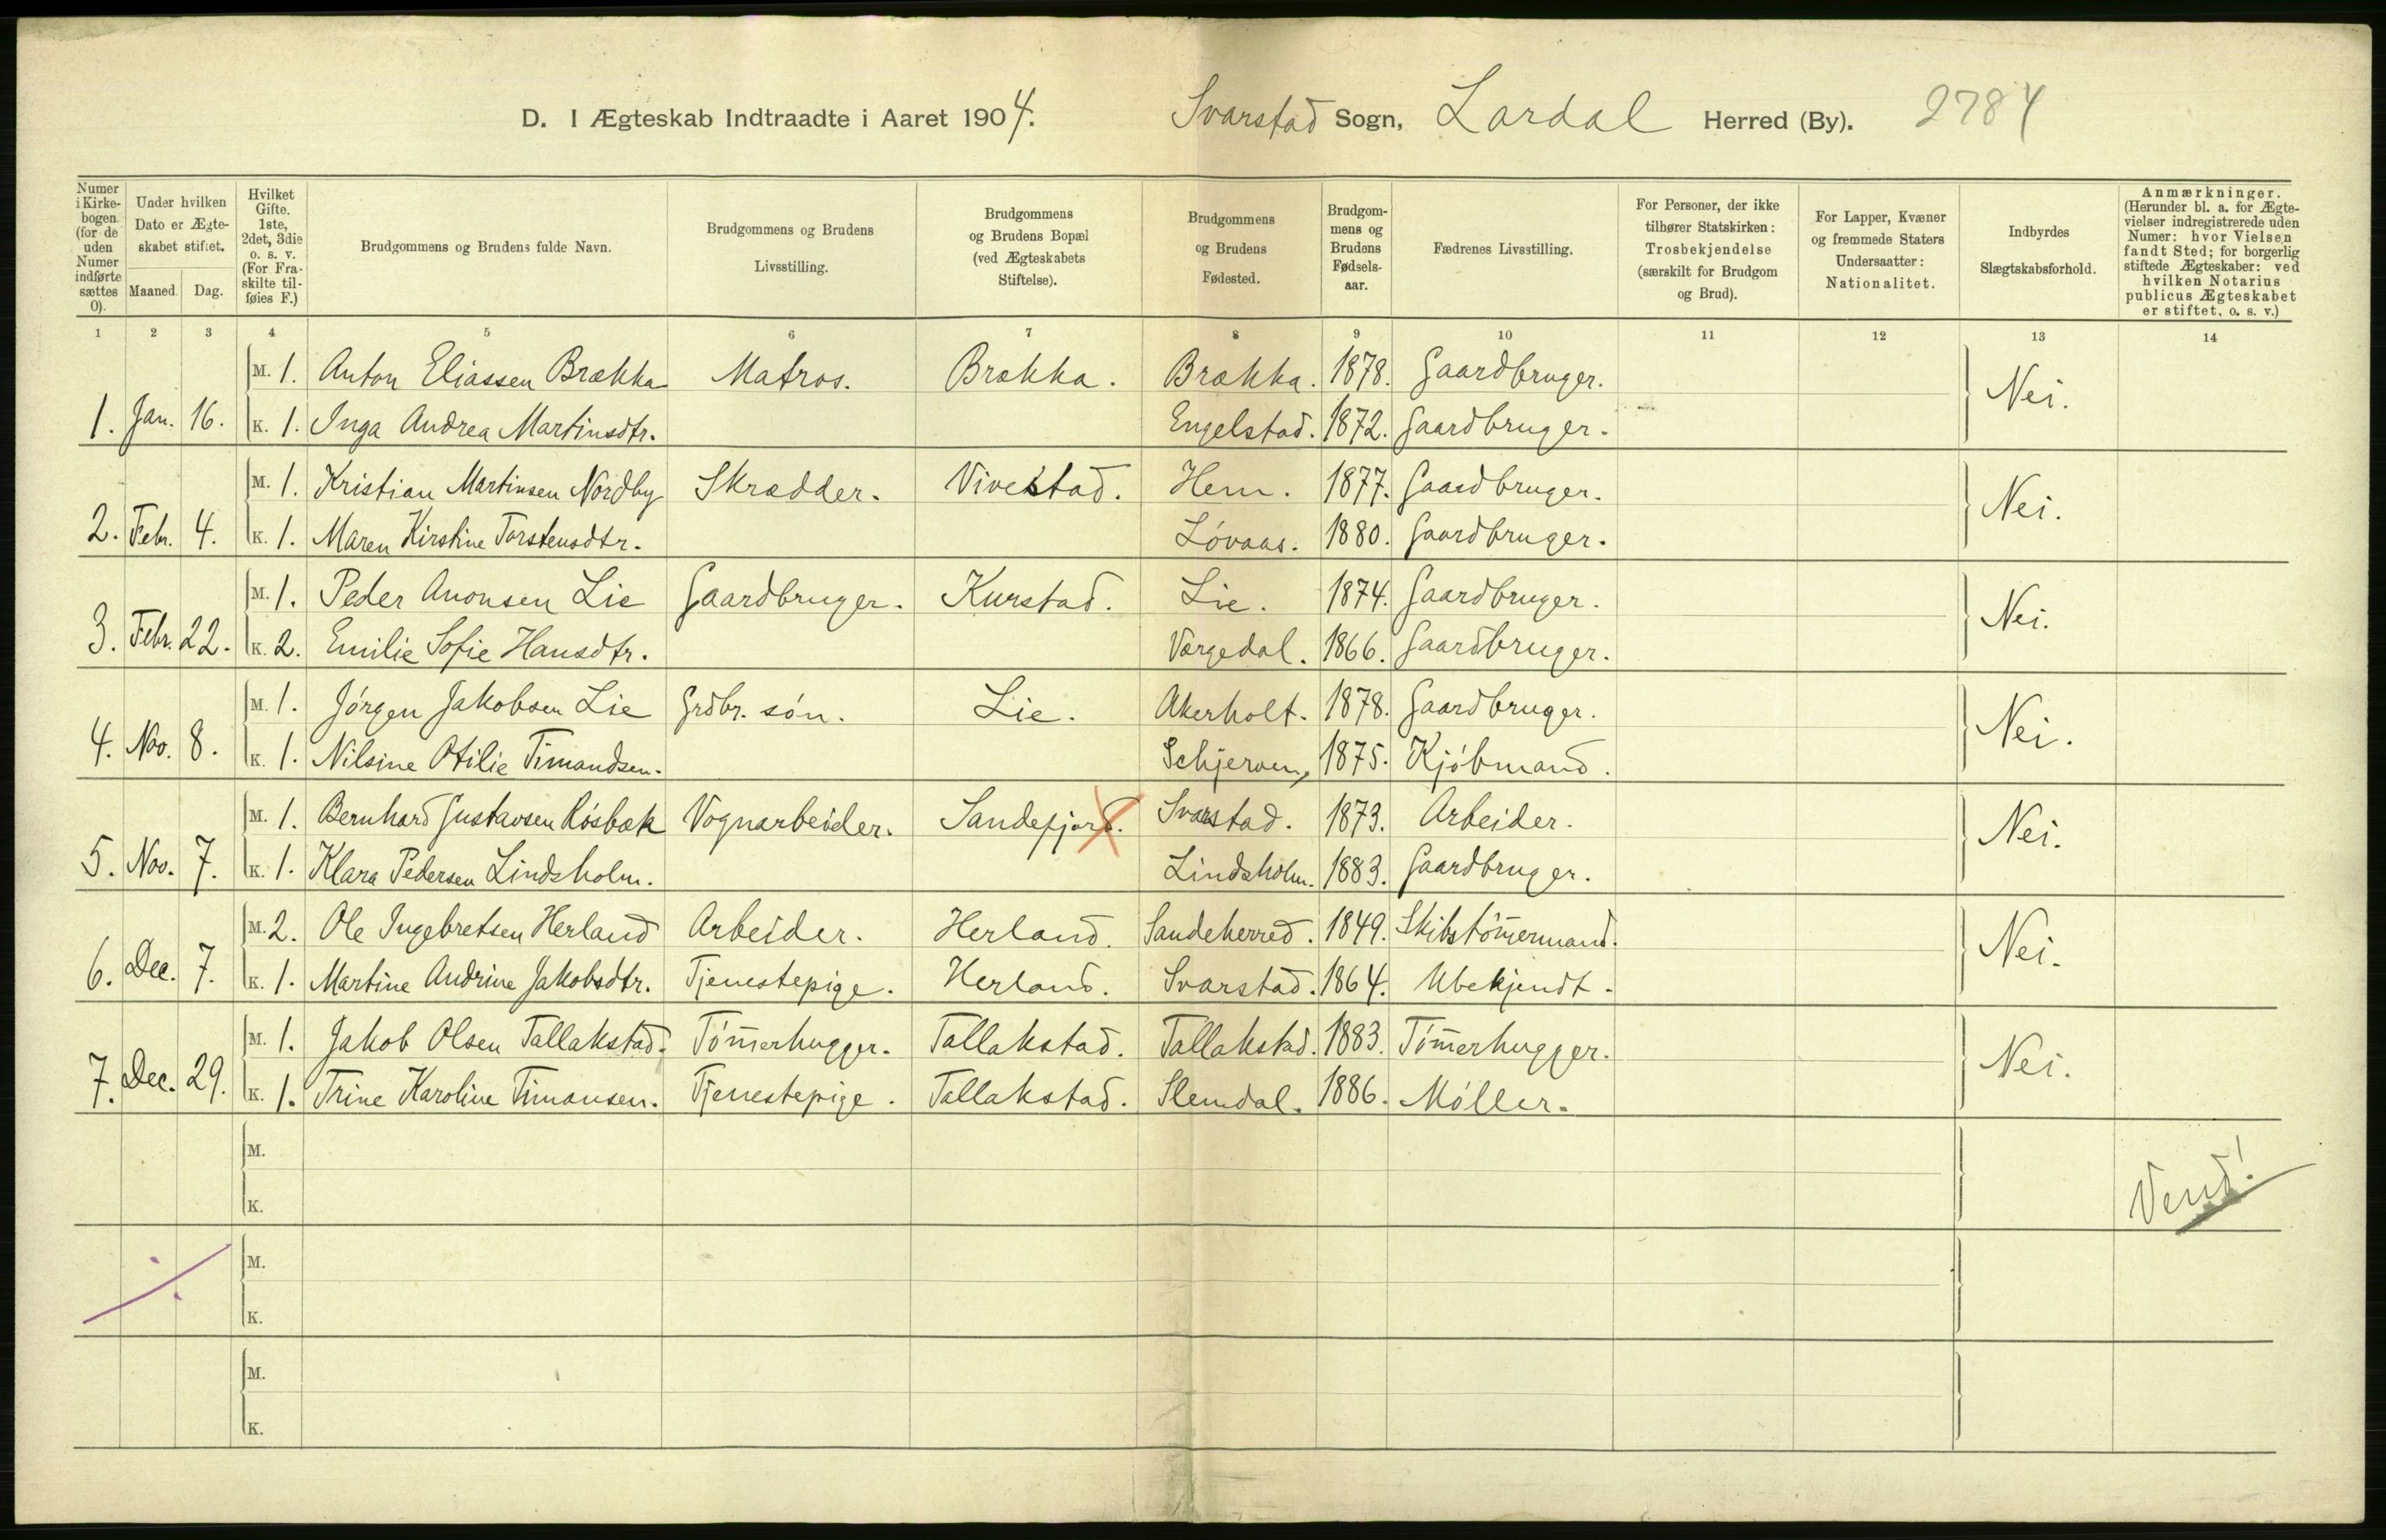 D. I Ægteskab Indtraadte i Aaret 1904. Svarstad Sogn, Lardal Herred (By). 2784
Numer i Kirkebogen (for de uden Numer indførte sættes 0).
Under hvilken Dato er Ægteskabet stiftet.
Maaned. Dag.
Hvilket Gifte. 1ste, 2det, 3die o. s. v. (For Fraskilte tilføies F.)
Brudgommens og Brudens fulde Navn.
Brudgommens og Brudens Livsstilling.
Brudgommens og Brudens Bopæl (ved Ægteskabets Stiftelse).
Brudgommens og Brudens Fødested.
Brudgommens og Brudens Fødselsaar.
Fædrenes Livsstilling.
For Personer, der ikke tilhører Statskirken: Trosbekjendelse (særskilt for Brudgom og Brud).
For Lapper, Kvæner og fremmede Staters Undersaatter: Nationalitet.
Indbyrdes Slægtskabsforhold.
Anmærkninger. (Herunder bl. a. for Ægtevielser indregistrerede uden Numer: hvor Vielsen fandt Sted; for borgerlig stiftede Ægteskaber: ved hvilken Notarius publicus Ægteskabet er stiftet, o. s. v.)
1 2 3 4 5 6 7 8 9 10 11 12 13 14
M. 1. Anton Eliassen Brækka Matros. Brækka. Brækka. 1878. Gaardbruger. Nei.
1. Jan. 16. K. 1. Inga Andrea Martinsdtr. Engelstad. 1872. Gaardbruger.
M. 1. Kristian Martinsen Nordby Skrædder. Vivestad. Hem. 1877. Gaardbruger. Nei.
2. Febr. 4. K. 1. Maren Kirstine Torstensdtr. Lóvaas. 1880. Gaardbruger.
M. 1. Peder Anonsen Lie Gaardbruger. Kurstad. Lie. 1874. Gaardbruger. Nei.
3. Febr. 22. K. 2. Emilie Sofie Hansdtr. Værgedal. 1866. Gaardbruger.
M. 1. Jórgen Jakobsen Lie Grdbr. són. Lie. Akerholt. 1878. Gaardbruger. Nei.
4. Nov. 8. K. 1. Nilsine Otilie Timandsen. Schjerven, 1875. Kjóbmand.
M. 1. Bernhard Gustavsen Rósbæk Vognarbeider. Sandefjord. Svarstad. 1873. Arbeider. Nei.
5. Nov. 7. K. 1. Klara Pedersen Lindsholm. Lindsholm. 1883. Gaardbruger.
M. 2. Ole Ingebretsen Herland Arbeider. Herland. Sandeherred. 1849. Skibstóm̅ermand. Nei.
6. Dec. 7. K. 1. Martine Andrine Jakobsdtr. Tjenestepige. Herland. Svarstad. 1864. Ubekjendt.
M. 1. Jakob Olsen Tallakstad. Tóm̅erhugger. Tallakstad. Tallakstad. 1883. Tóm̅erhugger. Nei.
7. Dec. 29. K. 1. Trine Karoline Timansen. Tjenestepige. Tallakstad. Slemdal. 1886. Móller.
M.
K. Vend!
M.
K.
M.
K.